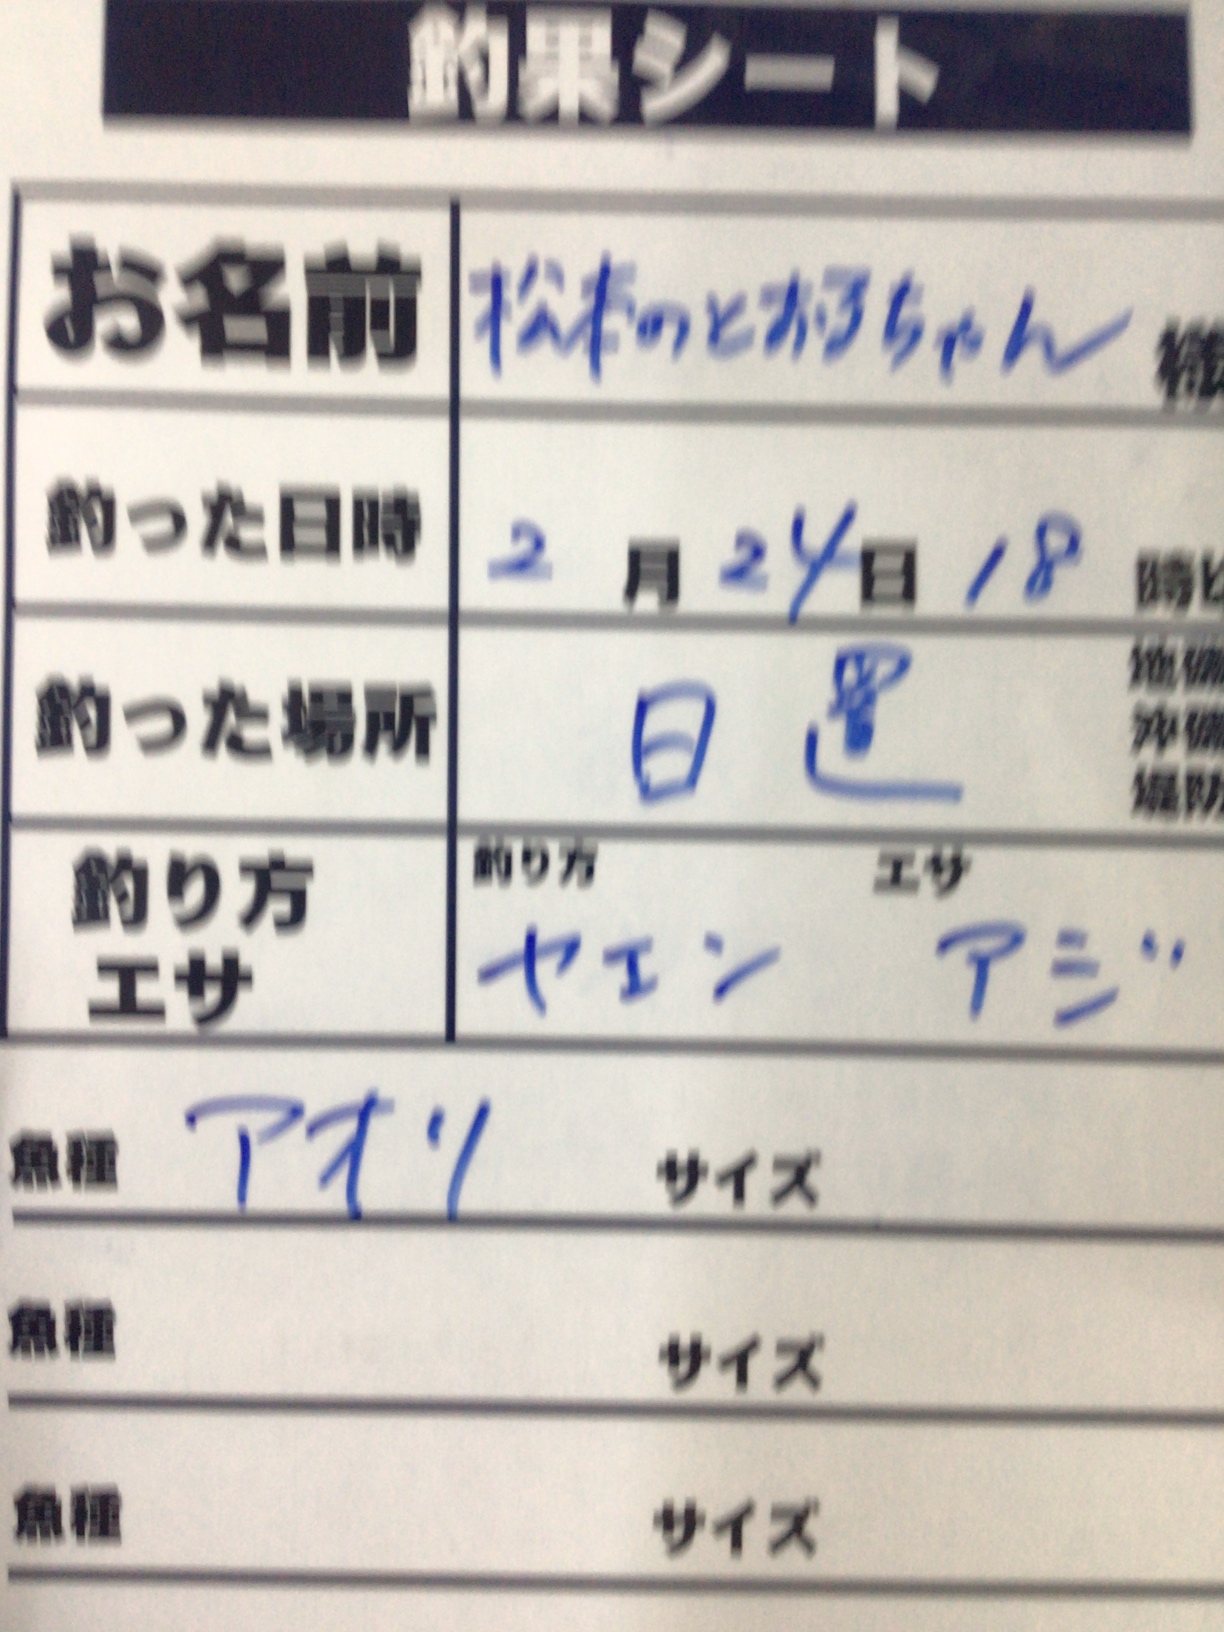 釣果シート
お名前 松本のとおるちゃん 様
釣った日時 2月24日18時
釣った場所 日置
地磯
沖磯
堤防
釣り方 エサ
釣り方 ヤエン
エサ アジ
魚種 アオリ サイズ
魚種 サイズ
魚種 サイズ